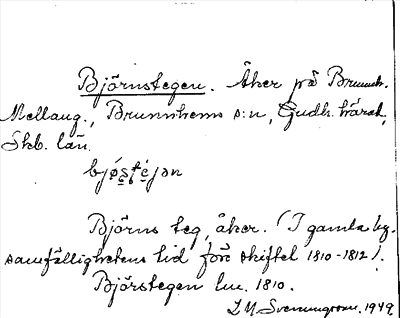 Björnstegen. Åker på Brunnh.
Mellang., Brunnhems s:n, Gudh. härad,
Skb. län.
bjø̂s̥té̥jən
Björns teg, åker. (I gamla by-
samfällighetens tid före skiftet 1810-1812).
Björstegen lm. 1810.
I.M. Svenungsson. 1949.